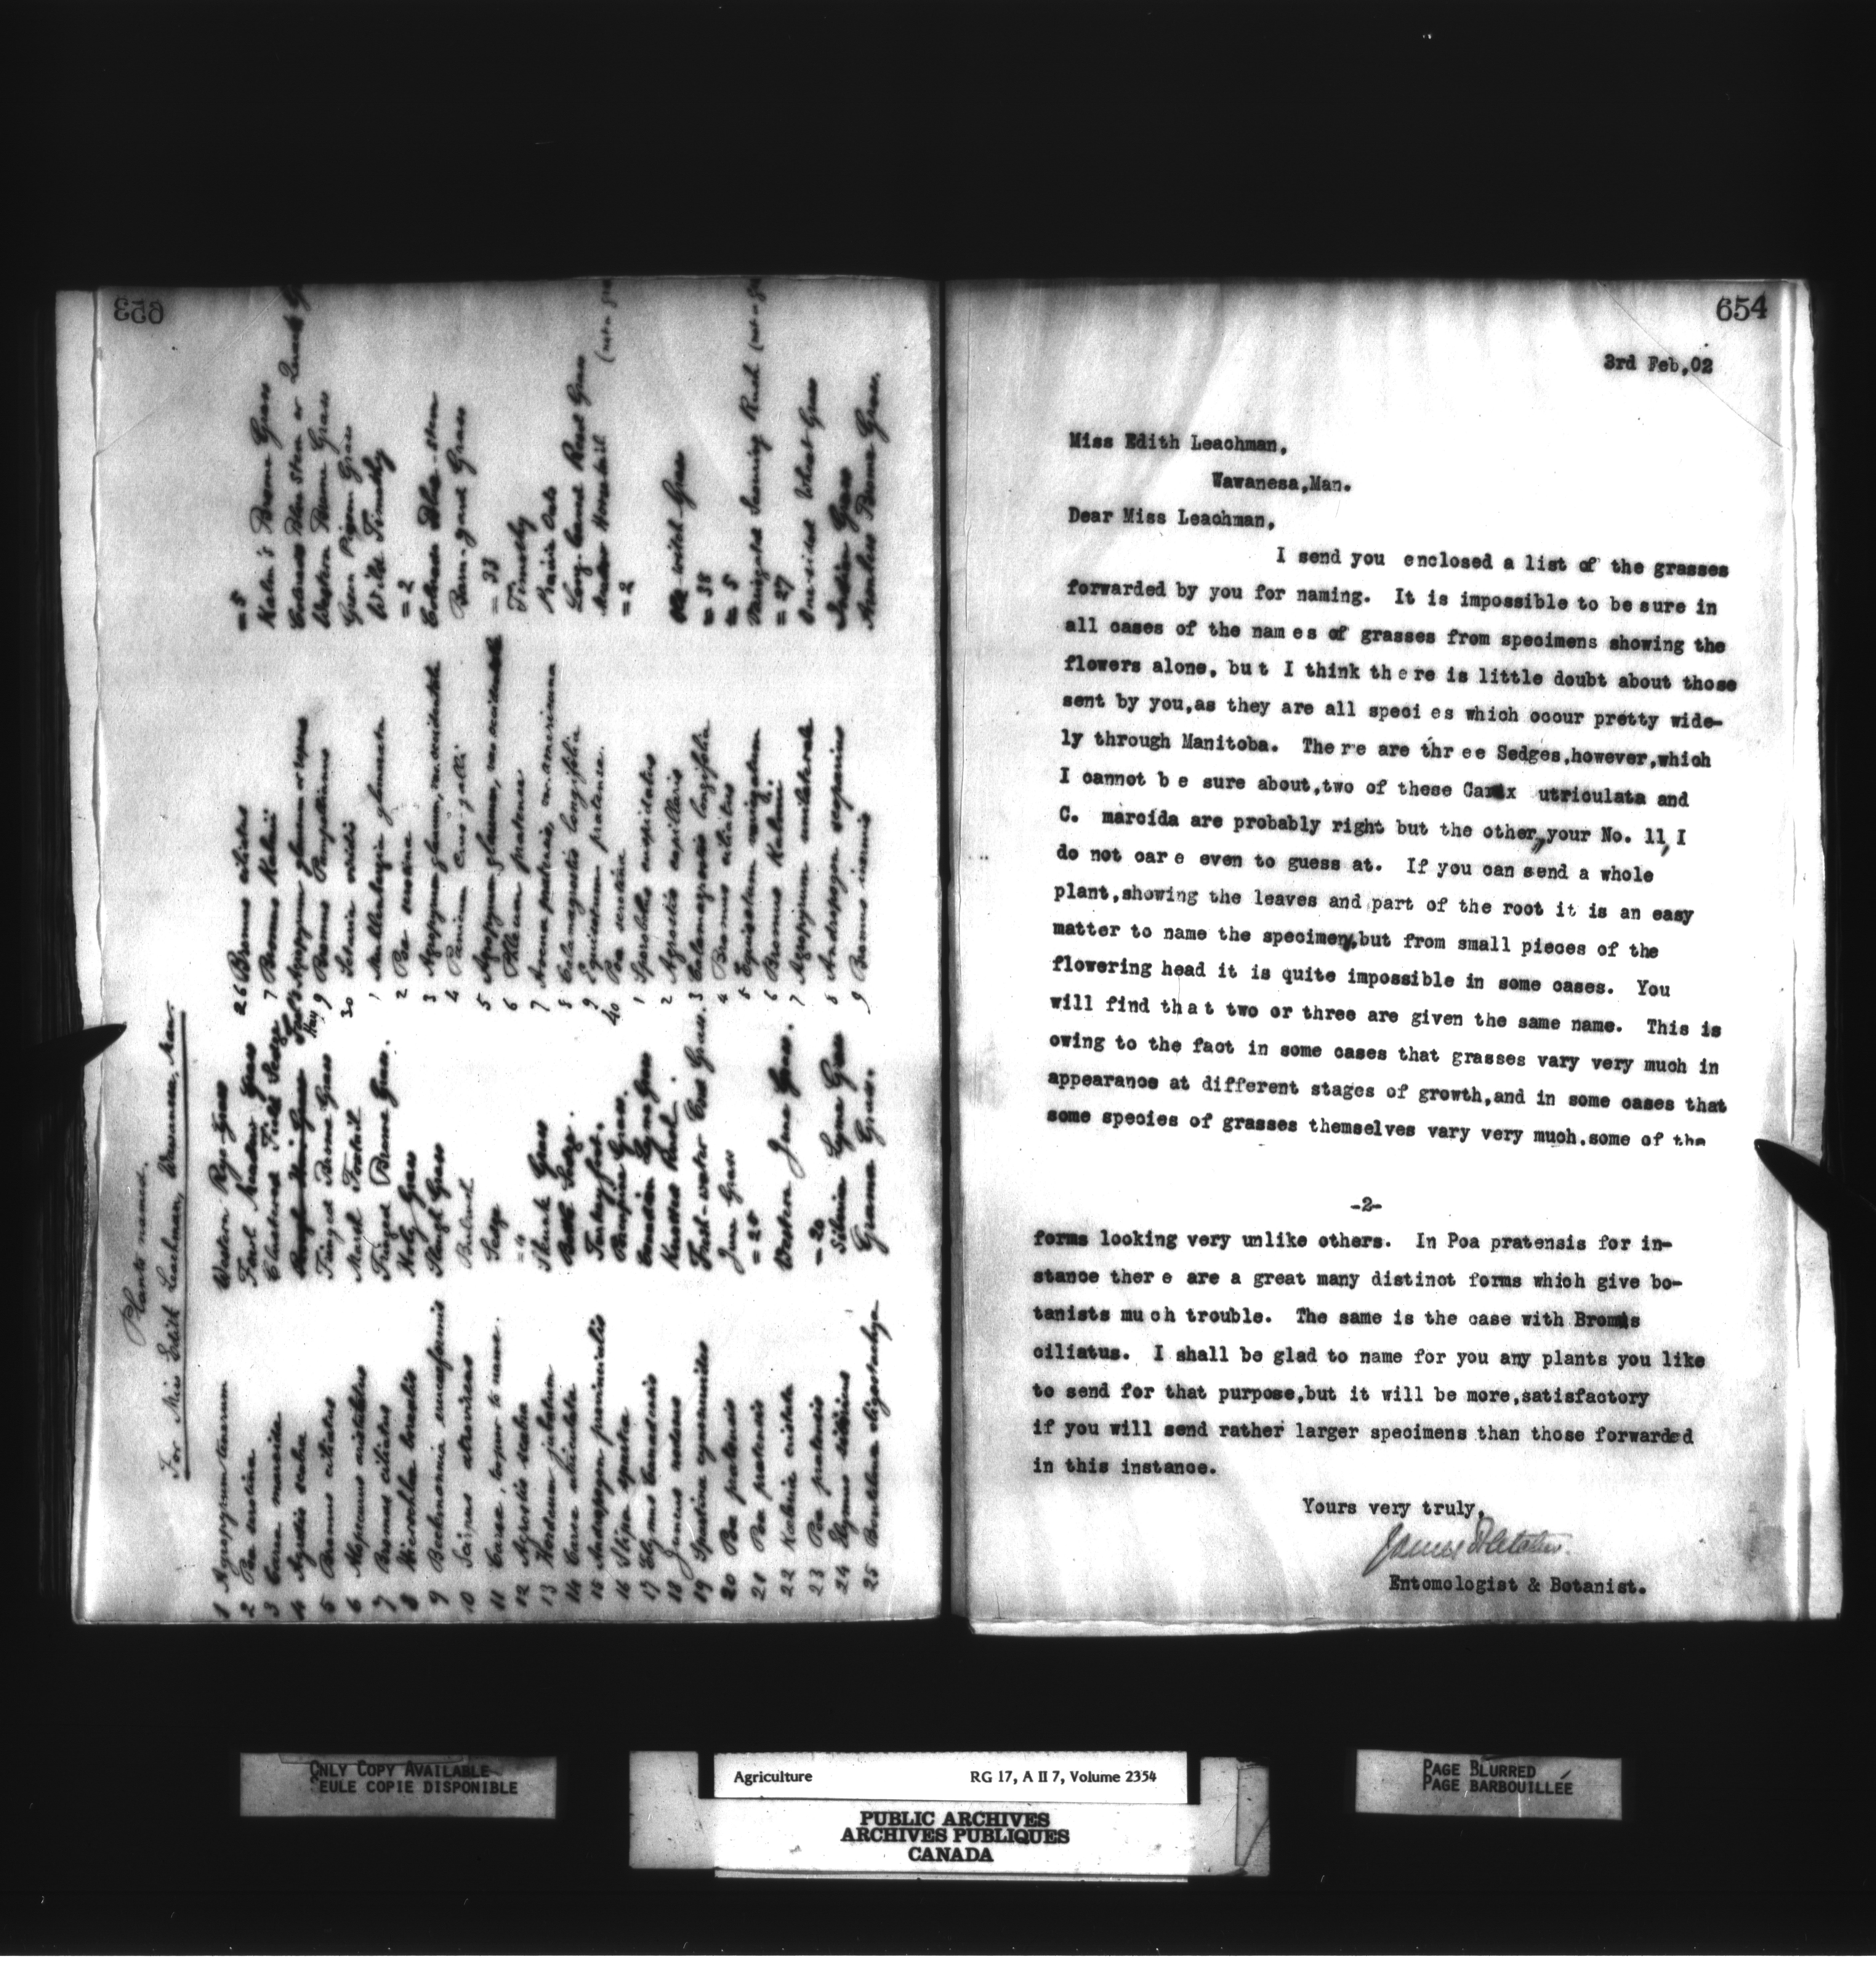 653
Plants named.
For Miss Edith Leachman, Wawanesa, Man.
1 Agropyrum tenerum Western Rye Grass
2 Poa serotina Fowl Meadow Grass
3 Carex marcida Clustered Field Sedge
4 Agrostis scabra Rough Hair Grass
5 Bromus ciliatus Fringed Brome Grass
6 Alopecurus aristulatus Marsh Foxtail
7 Bromus ciliatus Fringed Brome Grass.
8 Hierochloa borealis Holy Grass
9 Beckmannia erucaeformis Slough Grass
10 Scirpus atrovirens Bulrush
11 Carex, to name. Sedge
12 Agrostis scabra = 4
13 Hordeum jubatum Skunk Grass
14 Carex utriculata Sedge.
15 Andropogon provincialis Turkey foot.
16 Stipa spartea Porcupine Grass.
17 Elymus Canadensis Canadian Lyme Grass
18 Juncus nodosus Knotted Rush.
19 Spartina cynosuroides Fresh-water Cord Grass.
20 Poa pratensis June Grass
21 Poa pratensis = 20
22 Koeleria cristata Western June Grass.
23 Poa pratensis = 20
24 Elymus sibiricus Siberian Lyme Grass
25 Bouteloua oligostachya Grama Grass.
26 Bromus ciliatus = 5
7 Bromus Kalmii Kalm's Brome Grass
8 Agropyrum glaucum or repens Colorado Blue Stem or Quack
9 Bromus Pumpellianus Western Brome Grass
30 Setaria viridis Green Pigeon Grass
1 Muhlenbergia glomerata Wild Timothy
2 Poa serotina = 2
3 Agropyrum glaucum, var. occidentale Colorado Blue-stem
4 Panicum Crus-galli Barn-yard Grass
5 Agropyrum glaucum, var. occidentale = 33
6 Phleum pratense Timothy
7 Avena pratensis, var. americana Prairie Oats
8 Calamagrostis longifolia Long-leaved Reed Grass
9 Equisetum pratense. Meadow Horsetail (not a
40 Poa serotina = 2
1 Sporobolus cuspidatus
2 Agrostis capillaris witch Grass
3 Calamagrostis longifolia = 38
4 Bromus ciliatus = 5
5 Equisetum variegatum Variegated Scouring Rush (not a
6 Bromus Kalmii = 27
7 Agropyrum unilaterale One-sided Wheat Grass
8 Andropogon scoparius Indian Grass
9 Bromus inermis Awnless Brome Grass.
654
3rd Feb,02
Miss Edith Leachman,
Wawanesa,Man.
Dear Miss Leachman,
I send you enclosed a list of the grasses
forwarded by you for naming. It is impossible to be sure in
all cases of the names of grasses from specimens showing the
flowers alone, but I think there is little doubt about those
sent by you,as they are all species which occur pretty wide-
ly through Manitoba. There are three Sedges,however,which
I cannot be sure about,two of these Carex utriculata and
C. marcida are probably right but the other, your No. 11, I
do not care even to guess at. If you can send a whole
plant,showing the leaves and part of the root it is an easy
matter to name the specimen,but from small pieces of the
flowering head it is quite impossible in some cases. You
will find that two or three are given the same name. This is
owing to the fact in some cases that grasses vary very much in
appearance at different stages of growth,and in some cases that
some species of grasses themselves vary very much.some of the
-2-
forms looking very unlike others. In Poa pratensis for in-
stance there are a great many distinct forms which give bo-
tanists much trouble. The same is the case with Bromus
ciliatus. I shall be glad to name for you any plants you like
to send for that purpose,but it will be more,satisfactory
if you will send rather larger specimens than those forwarded
in this instance.
Yours very truly,
James Fletcher.
Entomologist & Botanist.
ONLY COPY AVAILABLE
SEULE COPIE DISPONIBLE
Agriculture RG 17, A II 7, Volume 2354
PUBLIC ARCHIVES
ARCHIVES PUBLIQUES
CANADA
PAGE BLURRED
PAGE BARBOUILLÉE